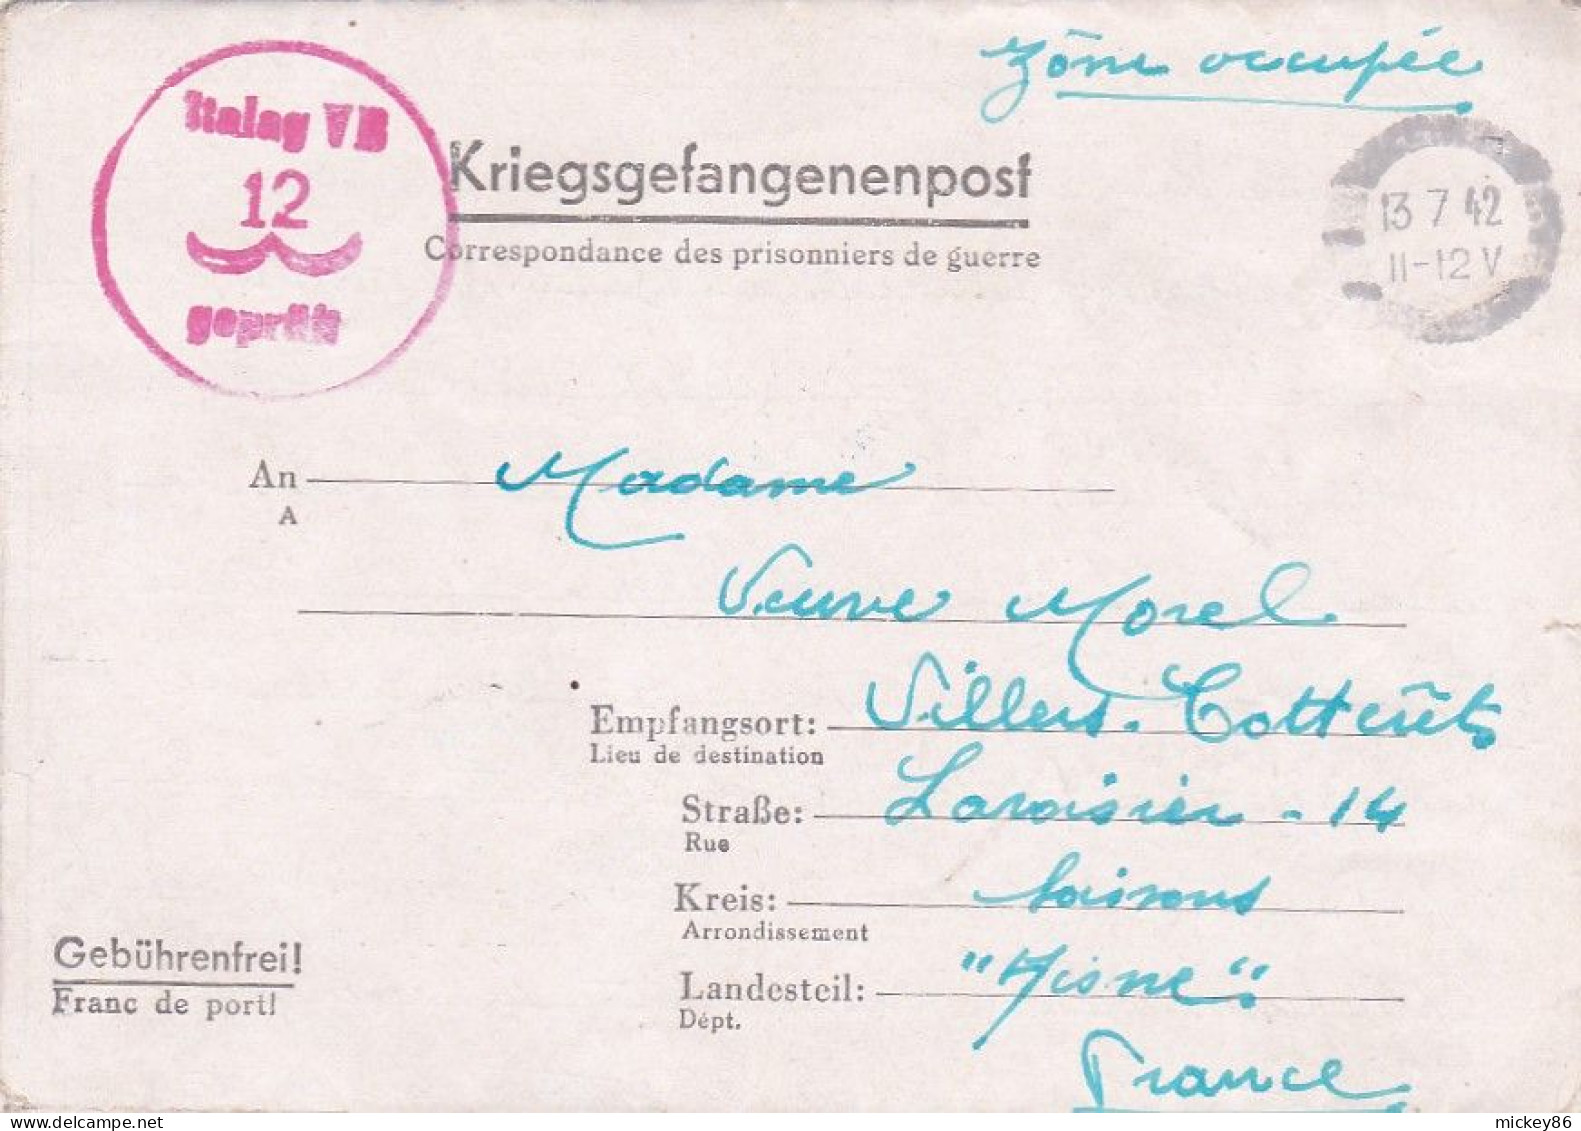 Zône occupée
Stalag VB
12
geprüft
Kriegsgefangenenpost
Correspondance des prisonniers de guerre
13 7 42
11-12 V
An Madame
A
Veuve Morel
Empfangsort: Villers-Cotterêts
Lieu de destination
Straße: Lavoisier - 14
Rue
Kreis: Soissons
Arrondissement
Gebührenfrei!
Franc de port!
Landesteil: "Aisne".
Dépt.
France
mickey86